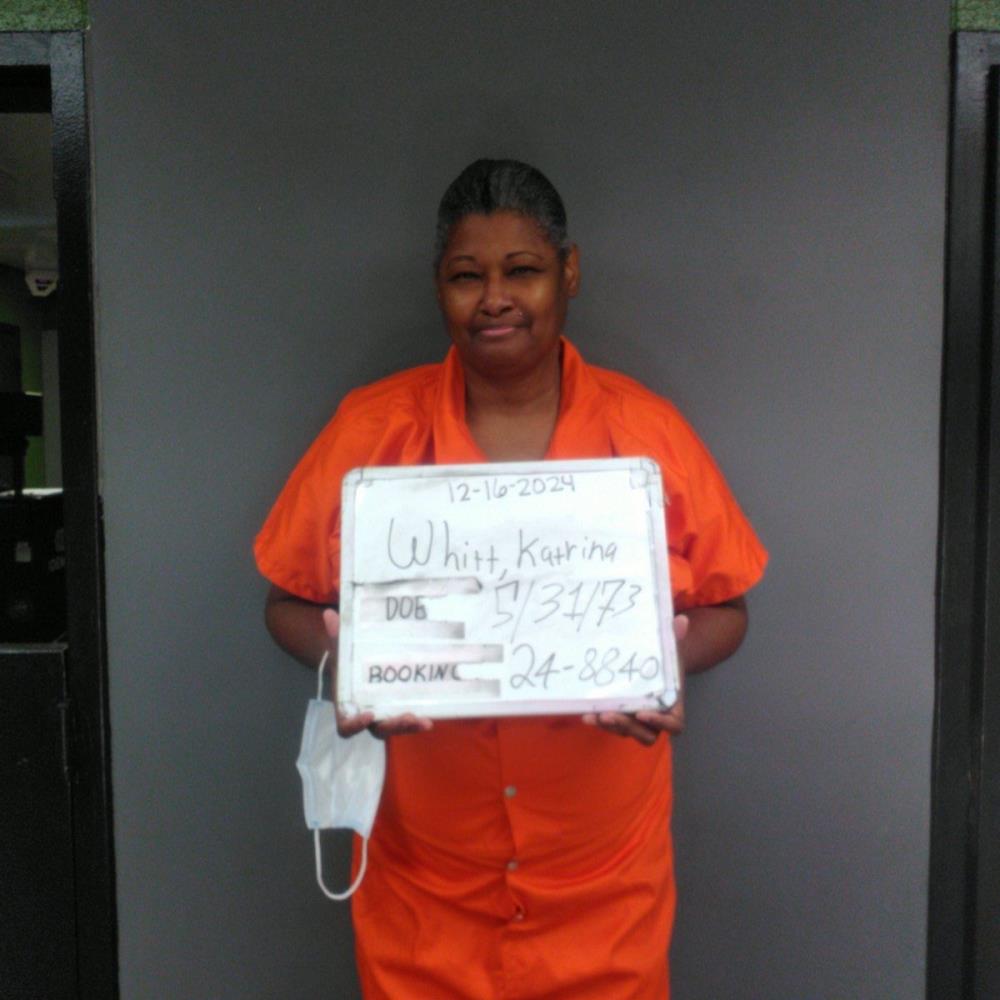 12-16-2024
Whitt, Katrina
DOB 5/31/73
BOOKING 24-8840